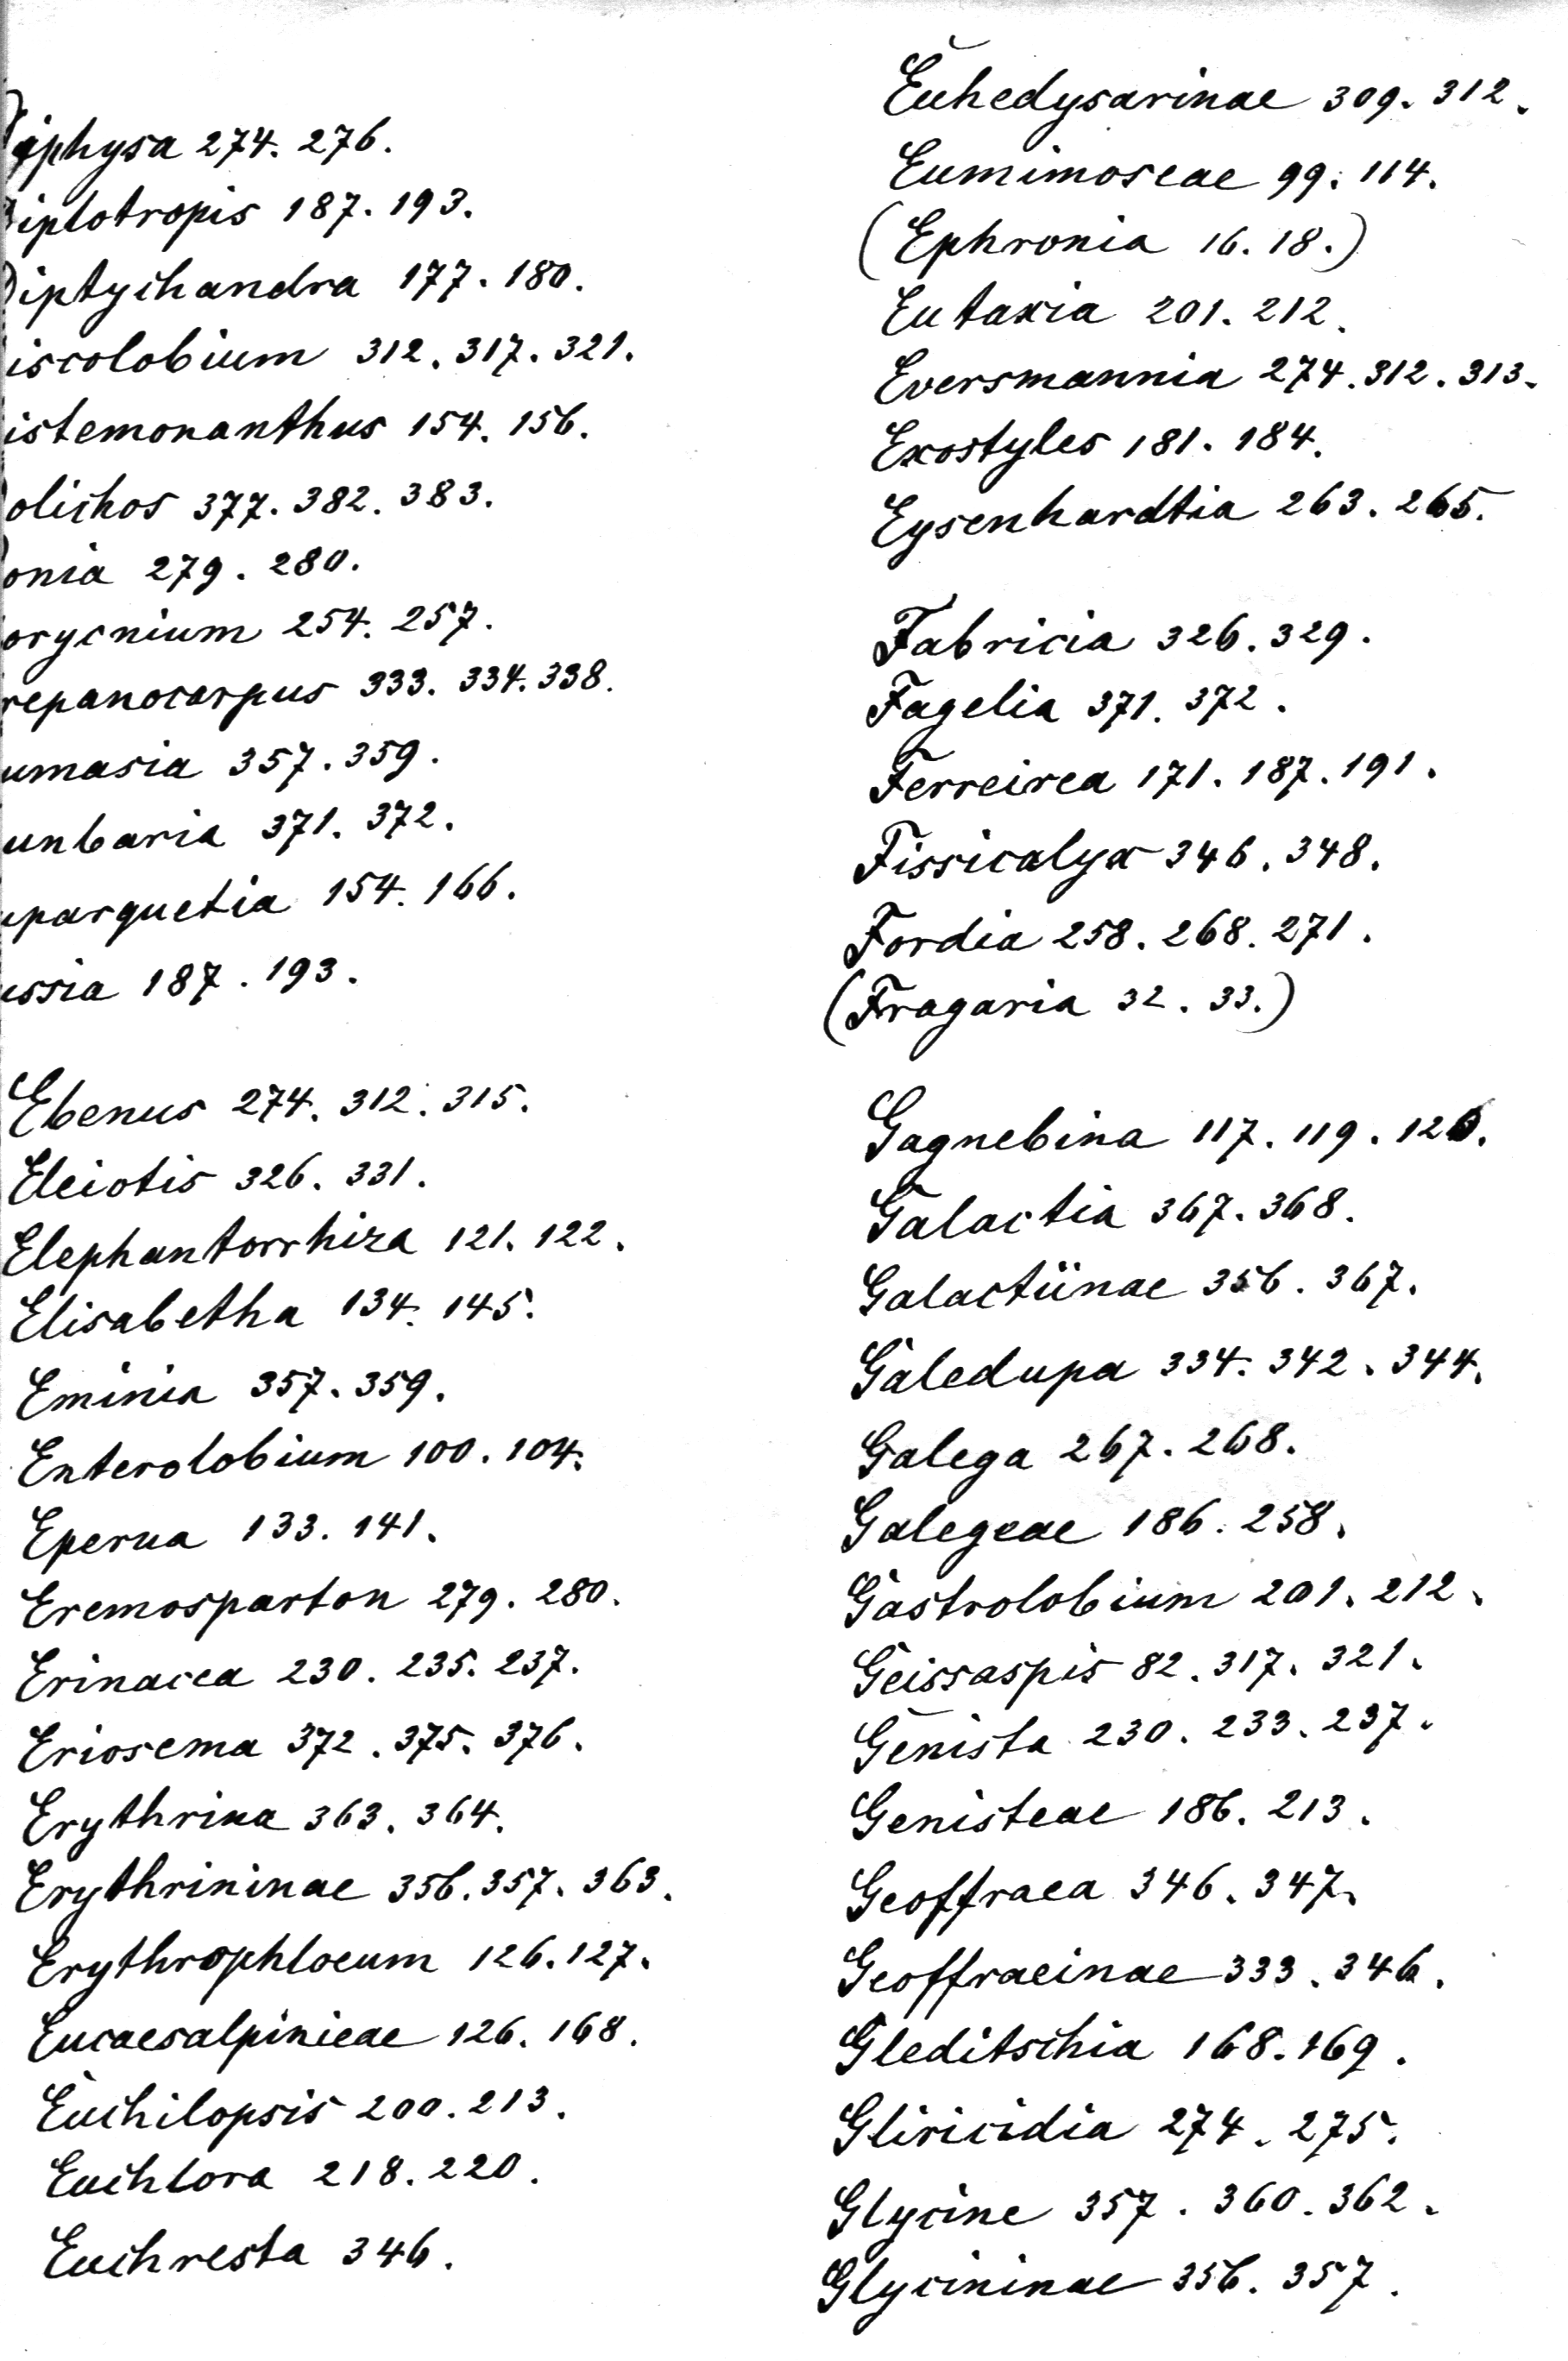 iphysa 274. 276.
iplotropis 187. 193.
Diptychandra 177. 180.
iscolobium 312. 317. 321.
istemonanthus 154. 156.
olichos 377. 382. 383.
onia 279. 280.
orycnium 254. 257.
repanocarpus 333. 334. 338.
umasia 357. 359.
unbaria 371. 372.
uparquetia 154. 166.
ussia 187. 193.
Ebenus 274. 312. 315.
Eleiotis 326. 331.
Elephantorrhiza 121. 122.
Elisabetha 134. 145.
Eminia 357. 359.
Enterolobium 100. 104.
Eperua 133. 141.
Eremosparton 279. 280.
Erinacea 230. 235. 237.
Eriosema 372. 375. 376.
Erythrina 363. 364.
Erythrininae 356. 357. 363.
Erythrophloeum 126. 127.
Eucaesalpinieae 126. 168.
Euchilopsis 200. 213.
Euchlora 218. 220.
Euchresta 346.
Euhedysarinae 309. 312.
Eumimoseae 99. 114.
(Ephronia 16. 18.)
Eutaxia 201. 212.
Eversmannia 274. 312. 313.
Exostyles 181. 184.
Eysenhardtia 263. 265.
Fabricia 326. 329.
Fagelia 371. 372.
Ferreirea 171. 187. 191.
Fissicalyx 346. 348.
Fordia 258. 268. 271.
(Fragaria 32. 33.)
Gagnebina 117. 119. 120.
Galactia 367. 368.
Galactiinae 356. 367.
Galedupa 334. 342. 344.
Galega 267. 268.
Galegeae 186. 258.
Gastrolobium 201. 212.
Geissaspis 82. 317. 321.
Genista 230. 233. 237.
Genisteae 186. 213.
Geoffraea 346. 347.
Geoffraeinae 333. 346.
Gleditschia 168. 169.
Gliricidia 274. 275.
Glycine 357. 360. 362.
Glycininae 356. 357.